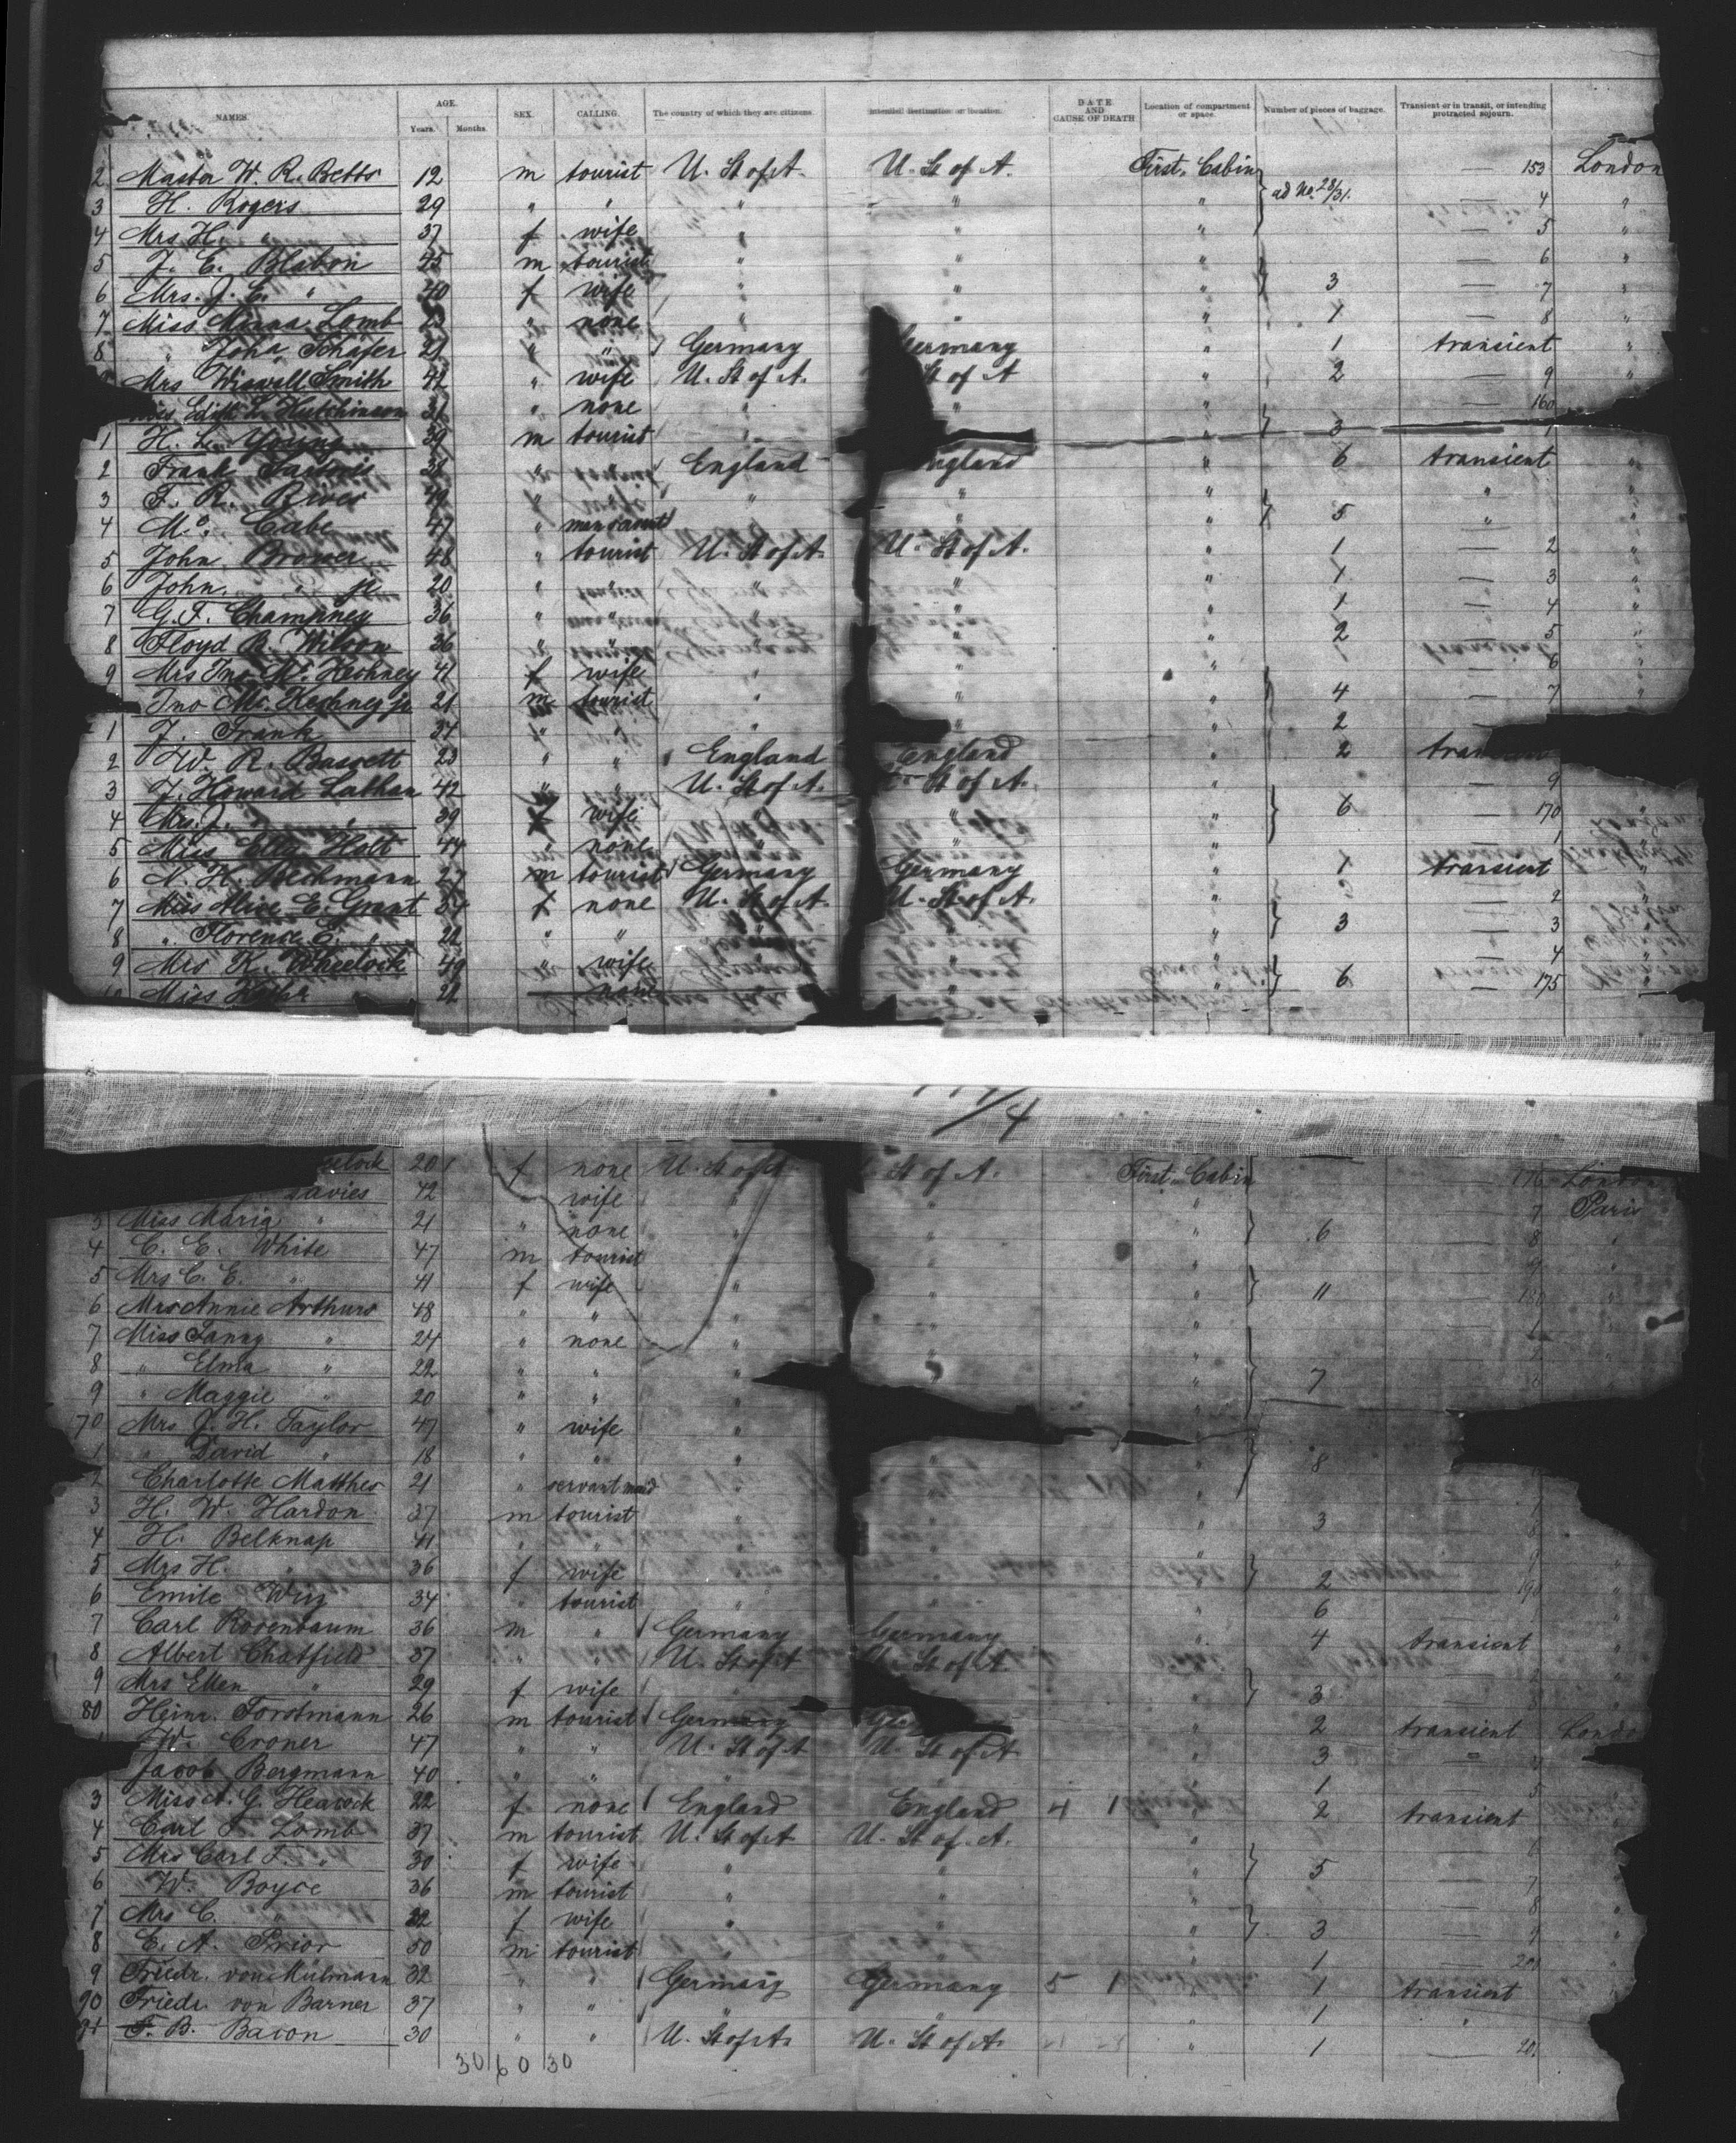 NAMES. AGE. Years. Months. SEX. CALLING. The country of which they are citizens. Intended destination or location. DATE AND CAUSE OF DEATH Location of compartment or space. Number of pieces of baggage. Transient or in transit, or intending protracted sojourn.
2 Master W. R. Betts 12 m tourist U. St of A. U. St of A. First Cabin ad No. 28/31. — 153 London
3 H. Rogers 29 " " " " " — 4 "
4 Mrs H. " 37 f wife " " " — 5 "
5 J. E. Blabon 45 m tourist " " " — 6 "
6 Mrs. J. E. " 40 f wife " " " 3 — 7 "
7 Miss Minna Lomb " none " " " 1 — 8 "
8 " Joha Schafer 21 " " Germany Germany " 1 transient "
Mrs Wiswall Smith 42 " wife U. St of A. St of A " 2 — 9 "
Miss Edith L. Hutchinson 31 " none " " " — 160
1 H. L. Young 39 m tourist " " 3 — 1
2 Frank 38 " " England England " 6 transient "
3 F. R. Rives 49 " " " " " "
4 Mc. Cabe 47 " man servant " " 5 " "
5 John Brower 48 " tourist U. St of A. U. St of A. " 1 — 2 "
6 John " jr 20 " " " " " 1 — 3 "
7 G. F. Champney 36 " " " " 1 — 4 "
8 Floyd B. Wilson 36 " " " " 2 — 5 "
9 Mrs Jno Mc. Kechney 41 f wife " " " — 6 "
Jno Mc. Kechney jr 21 m tourist " " " 4 — 7 "
1 J. Frank 34 " " " " " 2 —
2 W. R. Bassett 23 " " England England " 2 tran
3 J. Howard Lathan 42 " " U. St of A. St of A. " — 9
4 Mrs. J. " " 39 f wife " " " 6 — 170 "
5 Miss Ella Holt 44 " none " " " — 1 "
6 N. H. Bechmann 27 m tourist Germany Germany " 1 transient "
7 Miss Alice E. Grant 34 f none U. St of A. U. St of A. " — 2 "
8 " Florence E. " 22 " " " " " 3 — 3 "
9 Mrs K. Wheelock 49 " wife " — 4 "
Miss 22 none " " 6 — 175 "
/4
elock 20 f none U. St of A. St of A. First Cabin — 176 London
Davies 42 wife " " " — 7 Paris
3 Miss Maria " 21 " none " " " 6 — 8 "
4 C. E. White 47 m tourist " " " — 9 "
5 Mrs C. E. " 41 f wife " " " 11 — 180 "
6 Mrs Annie Arthurs 48 " " " " " — 1 "
7 Miss Fanny " 24 " none " " " — 2 "
8 " Elma " 22 " " " " " 7
9 " Maggie " 20 " " " " "
70 Mrs J. H. Taylor 47 " wife " "
1 " David " 18 " " " " " 8
2 Charlotte Matthes 21 " servant maid " " "
3 H. W. Hardon 37 m tourist " " " 3
4 H. Belknap 41 " " " " "
5 Mrs H. " 36 f wife " " " 2 — 190 "
6 Emile Wirz 34 " tourist " " " 6 —
7 Carl Rosenbaum 36 m " Germany Germany " 4 transient "
8 Albert Chatfield 37 " " U. St of A U. St of A. " — 2 "
9 Mrs Ellen " 29 f wife " " 3 —
80 Heinr. Forstmann 26 m tourist Germany " 2 transient London
W. Croner 47 " " U. St of A U. St of A " 3 —
Jacob Bergmann 40 " " " " " 1 — 5
3 Miss A. G. Heacock 22 f none England England 4 1 " 2 transient "
4 Carl F. Lomb 37 m tourist U. St of A U. St of A. " — 6 "
5 Mrs Carl F. " 30 f wife " " " 5 — 7 "
6 W. Boyce 36 m tourist " " " — 8 "
7 Mrs C. " 32 f wife " " " 3 — 9 "
8 E. A. Prior 50 m tourist " " " 1 — 200 "
9 Friedr. von Mülmann 32 " " Germany Germany 5 1 " 1 transient
90 Friedr. von Barner 37 " " " " " 1 "
91 F. B. Bacon 30 " " U. St of A. U. St of A. " 1 — 20
30 60 30